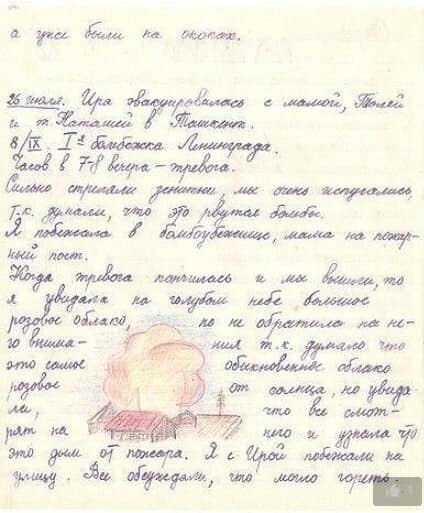 а уже были на окопах.
26 июля. Ира эвакуировалась с мамой, Толей
и т. Наташей в Ташкент.
8/IX. Iая бомбежка Ленинграда.
Часов в 7-8 вечера – тревога.
Сильно стреляли зенитки, мы очень испугались,
т.к. думали, что это рвутся бомбы.
Я побежала в бомбоубежище, мама на пожар-
ный пост.
Когда тревога кончилась и мы вышли, то
я увидала на голубом небе большое
розовое облако, но не обратила на не-
го внима- ния т.к. думала что
это самое обыкновенное облако
розовое от солнца, но увида-
ли, что все смот-
рят на него и узнала что
это дым от пожара. Я с Ирой побежали на
улицу. Все обсуждали, что могло гореть.